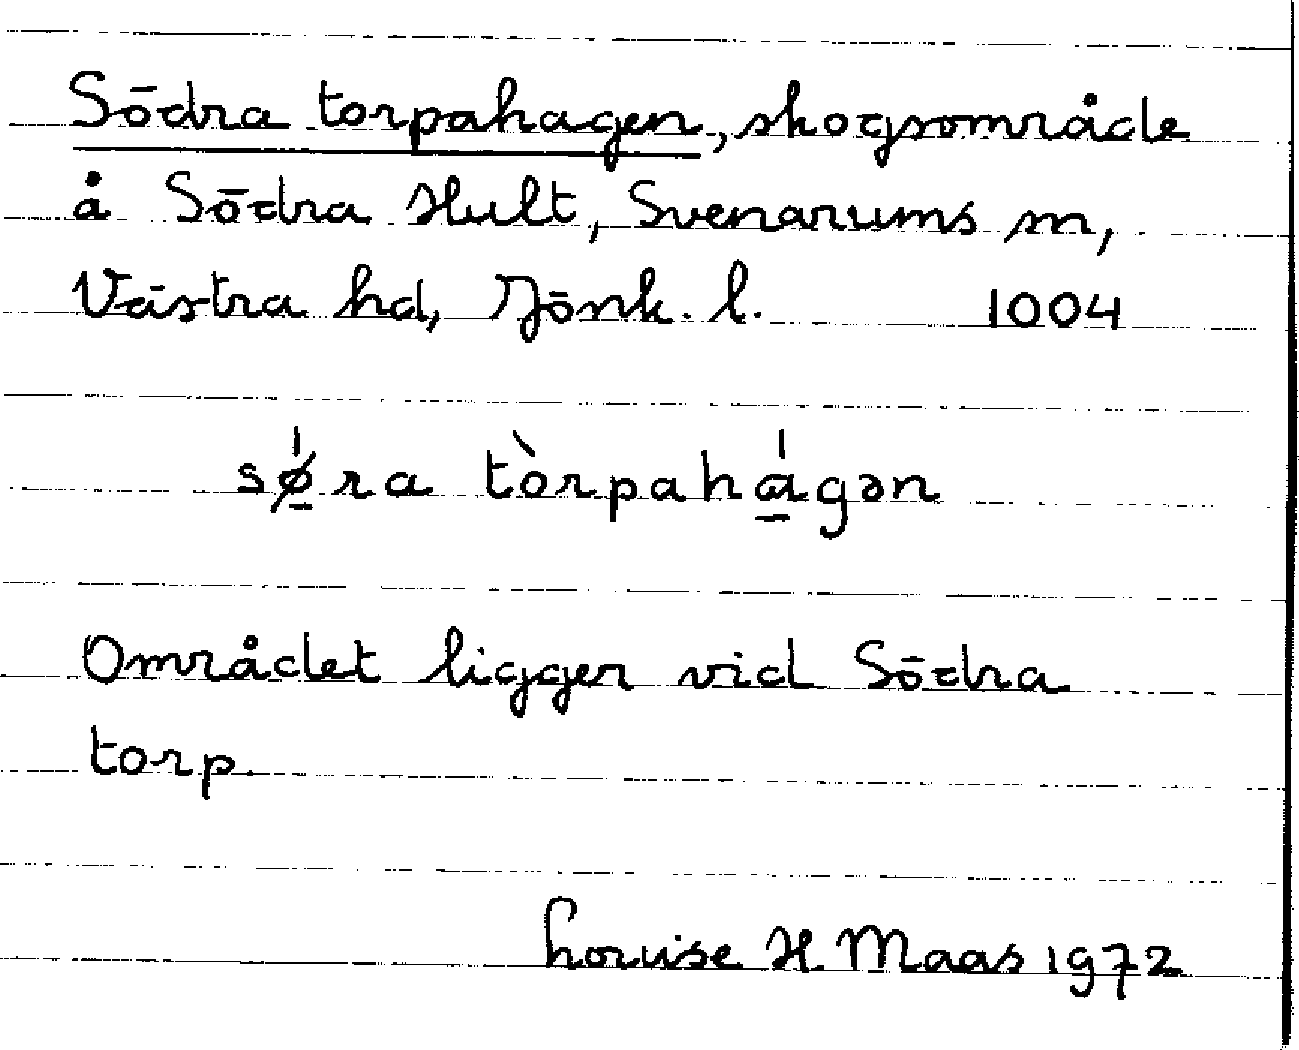 Södra torpahagen, skogsområde
å Södra Hult, Svenarums sn,
Västra hd, Jönk. l. 1004
sǿ̱ra tòrpahɑ̱́gən
Området ligger vid Södra
torp.
Louise H. Maas 1972